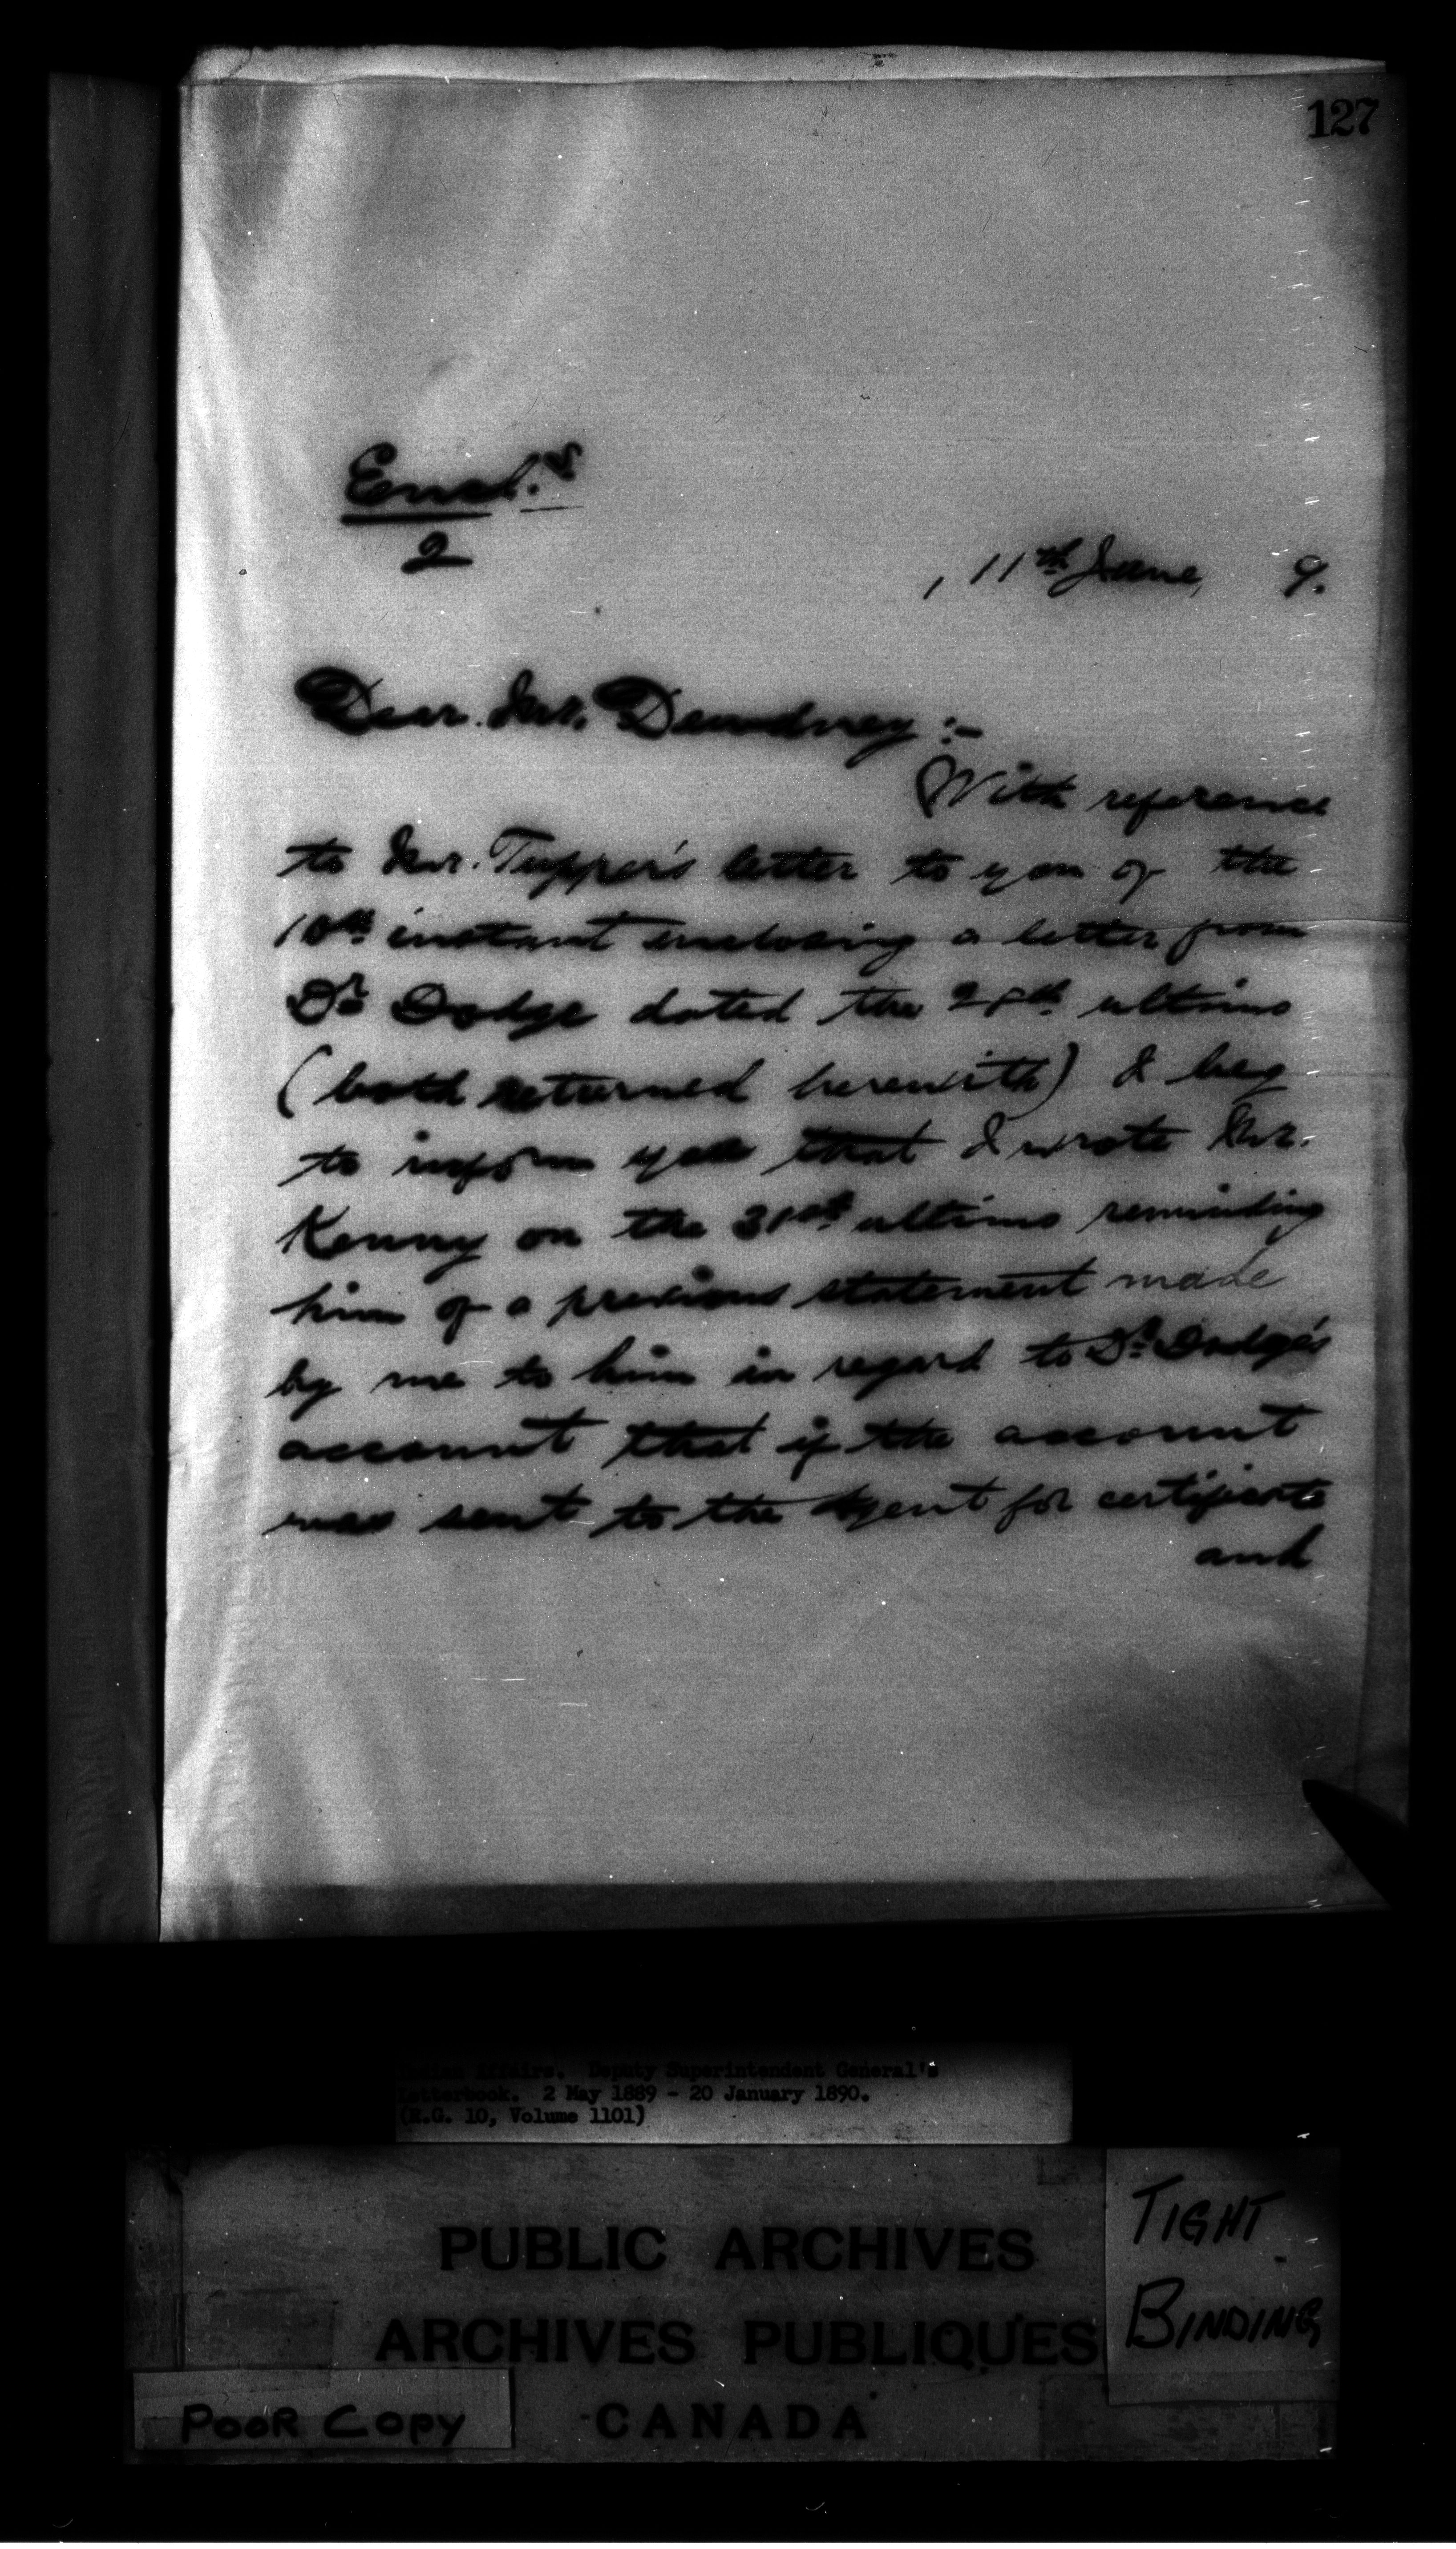 127
Encl.s
2
, 11th June, 9.
Dear Mr. Dewdney :-
With reference
to Mr. Tupper's letter to you of the
10th instant enclosing a letter from
Dr Dodge dated the 28th ultimo
(both returned herewith) I beg
to inform you that I wrote Mr.
Kenny on the 31st ultimo reminding
him of a previous statement made
by me to him in regard to Dr Dodge's
account that if the account
was sent to the Agent for certificate
and
Indian Affairs. Deputy Superintendent General's
Letterbook. 2 May 1889 - 20 January 1890.
(R.G. 10, Volume 1101)
PUBLIC ARCHIVES
ARCHIVES PUBLIQUES
CANADA
TIGHT
BINDING
POOR COPY